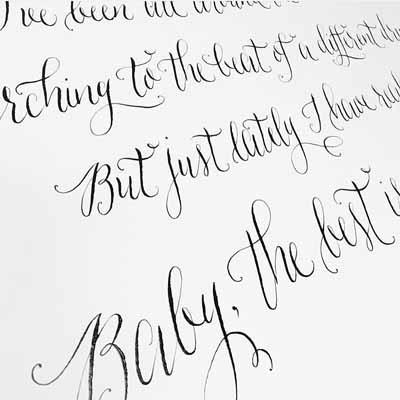 I've been all around
rching to the beat of a different dru
But just lately I have real
Baby, the best i